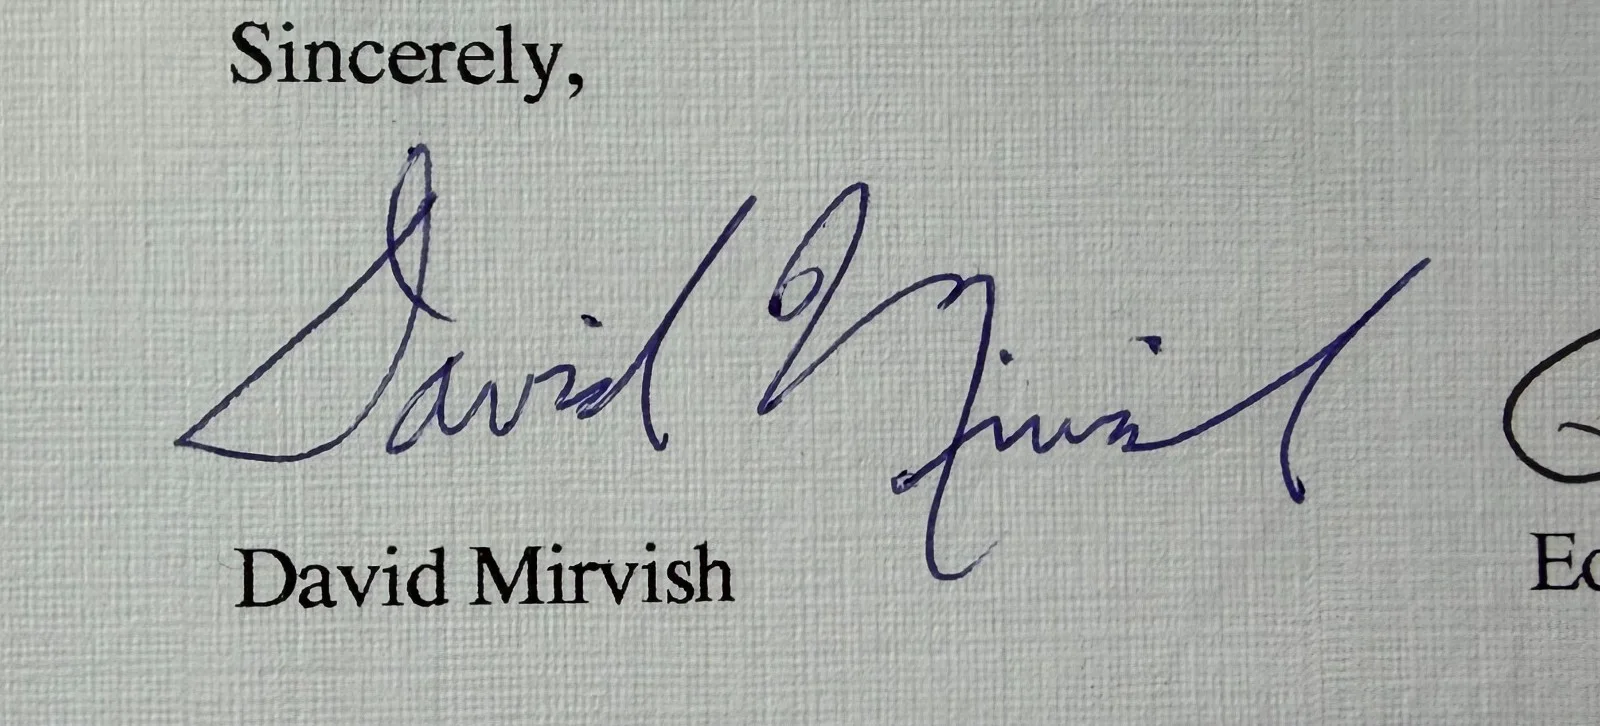 Sincerely,
David Mirvish
David Mirvish